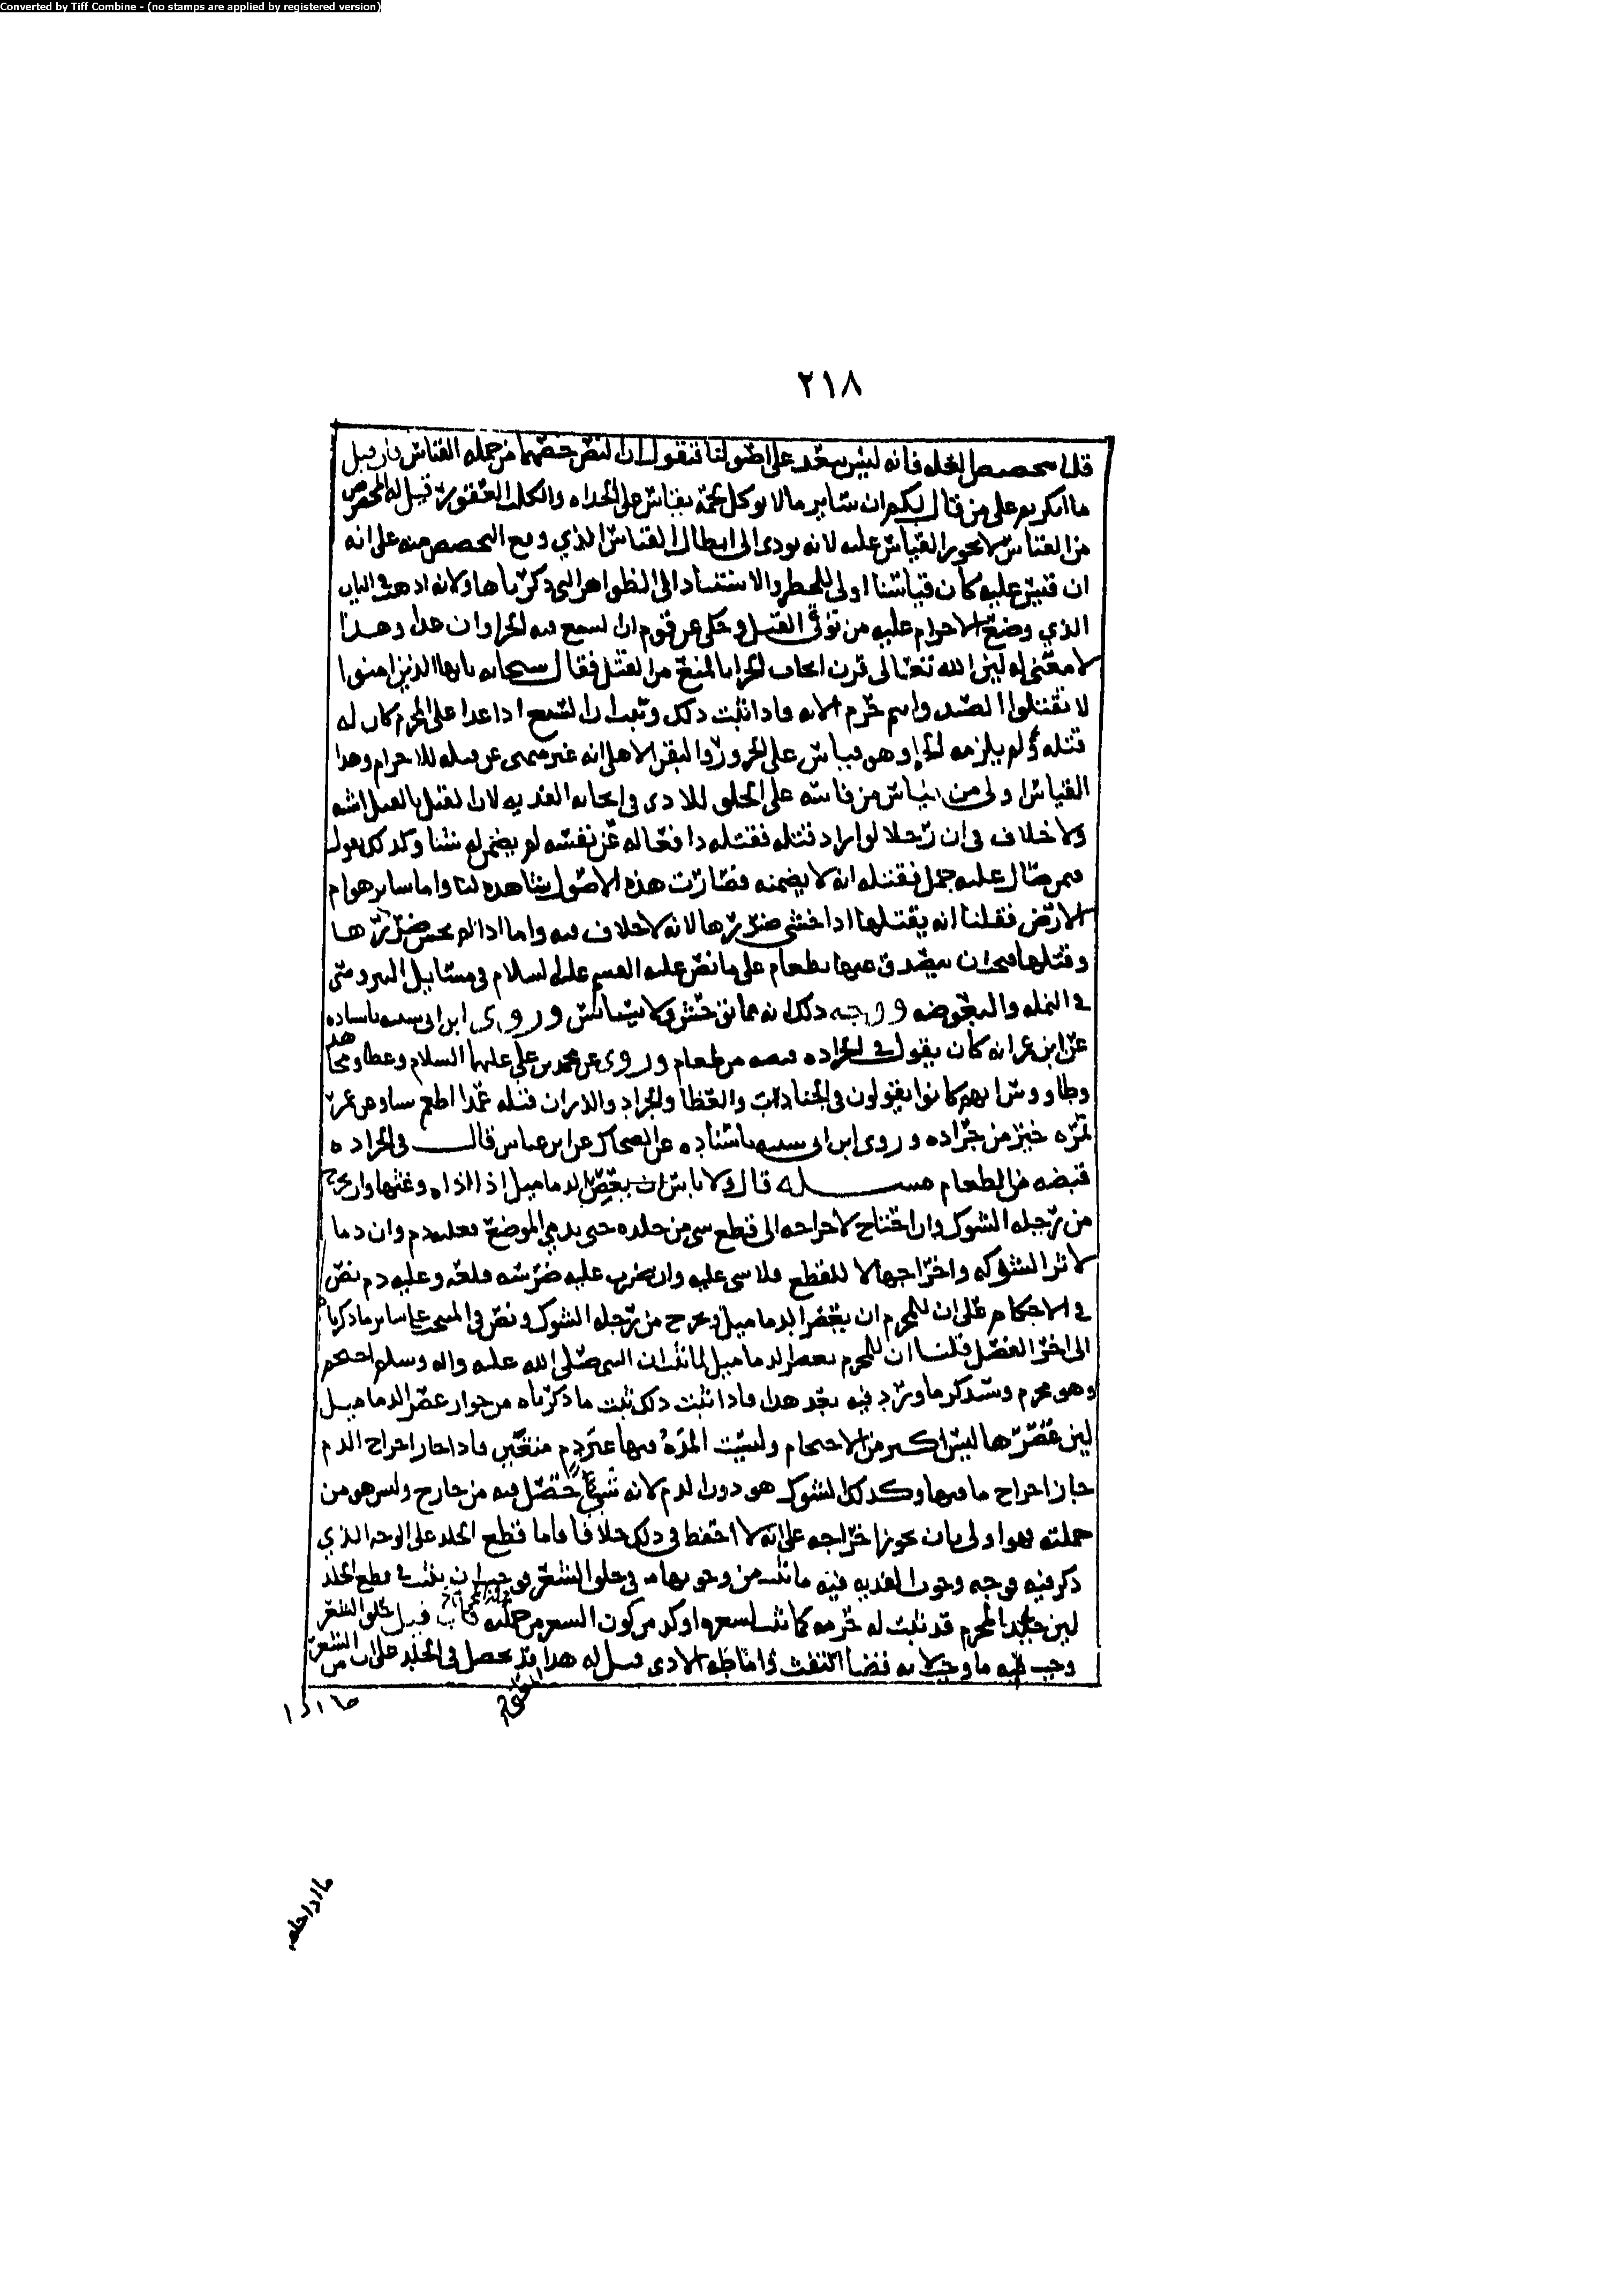 Converted by Tiff Combine - (no stamps are applied by registered version)
٢١٨
قلنا بتخصيص العله فانه ليس يبعد على اصولنا فنقول ان النص خصهما من جمله القياس فان قيل
ما انكرتم على من قال لكم ان سائر ما لا يوكل لحمه يقاس على الحداه والكلب العقور قيل له المخصوص
من القياس لا يجوز القياس عليه لانه يودي الى ابطال القياس الذي وقع التخصيص منه على انه
ان قيس عليه كان قياسنا اولى للحظر والاستناد الى الظواهر التي ذكرناها ولانه اذهب في الباب
الذي وضع الاحرام عليه من توقي القتل وحكي عن قوم ان السبع فيه الجزا وان عدا وهذا
لا معنى له لين الله تعالى قرن ايجاب الجزا بالمنع من القتل فقال سبحانه يايها الذين امنوا
لا تقتلوا الصيد وانتم حرم الايه فاذا ثبت ذلك وثبت ان السبع اذا عدا على المحرم كان له
قتله ولم يلزمه الجزا وهو قياس على الجزور والبقر الاهلي انه غير منهي عن قتله للاحرام وهذا
القياس اولى من قياس من قاسه على الحلق للاذى في ايجابه الفديه لان القتل بالقتل اشبه
ولا خلاف في ان رجلا لو اراد قتله فقتله دافعا له عن نفسه لم يضمن له شيئا وكذلك نقول
فيمن صال عليه جمل فقتله انه لا يضمنه فصارت هذه الاصول شاهده لنا واما سائر هوام
الارض فقلنا انه يقتلها اذا خشي ضررها لانه لا خلاف فيه واما اذا لم يخش ضررها
وقتلها فيجب ان يتصدق عنها بطعام على ما نص عليه القسم عليه السلام في مسايل النيروسي
في النمله والبعوضه ووجه ذلك انه مما يتوحش ولا يستانس وروى ابن ابي شيبه باسناده
عن ابن عمر انه كان يقول في الجراده قبضه من طعام وروى عن محمد بن علي عليهما السلام وعطا ومجاهد
وطاووس انهم كانوا يقولون في الجنادب والعظا والجراد والذران قتله عمدا اطعم شيا وعن عمر
تمره خير من جراده وروى ابن ابي شيبه باسناده عن الضحاك عن ابن عباس قال في الجراده
قبضه من الطعام مسله قال ولا باس ان يعصر الدماميل اذا اذاه وغثها وان يخرج
من رجله الشوك وان احتاج لاخراجه الى قطع شي من جلده حتى يدمي الموضع فعليه دم وان دما
لاثر الشوكه واخراجها لا للقطع فلا شي عليه وان ضرب عليه ضرسه قلعه وعليه دم نص
في الاحكام على ان للمحرم ان يعصر الدماميل ويخرج من رجله الشوك ونص في المنتخب على سائر ما ذكرنا
الى اخر الفصل قلنا ان للمحرم يعصر الدماميل لما ثبت ان النبي صلى الله عليه واله وسلم احتجم
وهو محرم وسنذكر ما ورد فيه بعد هذا فاذا ثبت ذلك ثبت ما ذكرناه من جواز عصر الدماميل
لين عصرها ليس اكبر من الاحتجام وليست المده فيها غير دم متغير فاذا جاز اخراج الدم
جاز اخراج ما فيها وكذلك الشوك هو دون الدم لانه شي حصل فيه من خارج وليس هو من
جملته فهو اولى بان يجوز اخراجه على انه لا احفظ في ذلك خلافا فاما قطع الجلد على الوجه الذي
ذكر فيه فوجه وجوب الفديه فيه ما ثبت من وجوبها في حلق الشعر فوجب ان يثبت في قطع الجلد
لين جلد المحرم قد ثبت له حرمه كما ثبت لشعره اوكد من كون الشعر من جملته فان قيل حلق الشعر
وجب فيه ما وجب لانه قضا التفث واماطه الاذى قيل له هذا قد يحصل في الجلد على ان الشعر